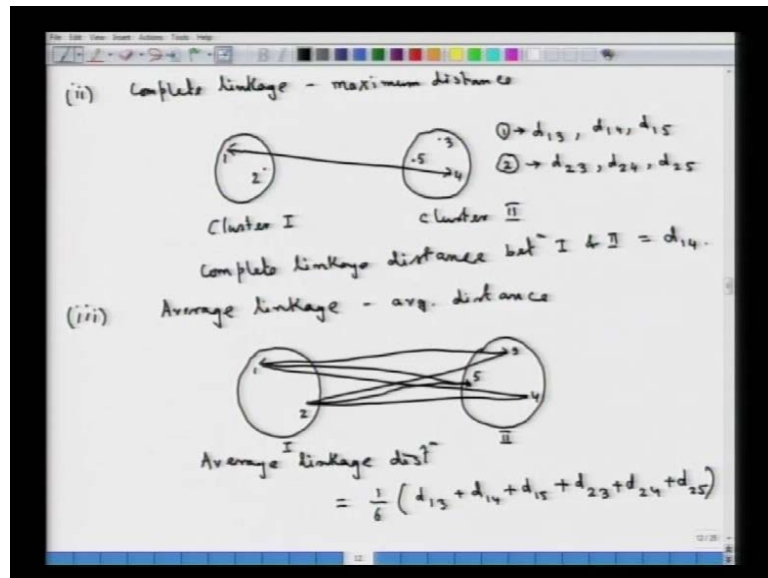 File Edit View Insert Actions Tools Help
(ii) Complete linkage - maximum distance
① → d13, d14, d15
② → d23, d24, d25
1 2 3 5 4
Cluster I
cluster II
Complete linkage distance bet⁻ I & II = d14.
(iii) Average linkage - avg. distance
1 2 3 5 4
I II
Average linkage dist⁻
= 1/6 (d13 + d14 + d15 + d23 + d24 + d25)
12